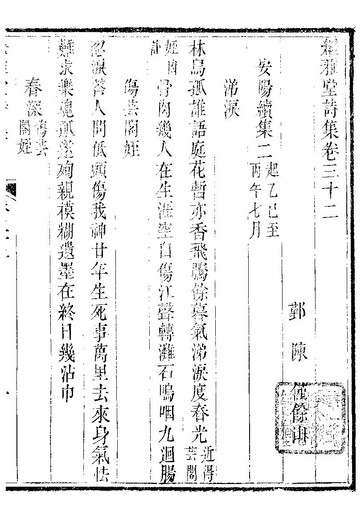 雅堂詩集卷三十二
郭 陳
安陽續集二起乙巳至丙午七月
涕淚
林烏孤誰語庭花暫亦香飛騰餘暮氣涕淚度春光近得芸閣
姪凶訃骨肉幾人在生涯空自傷江聲轉灘石嗚咽九迴腸
傷芸閣姪
忍淚答人問低頭傷我神廿年生死事萬里去來身氣怯
求樂魂孤遂殉親模糊遺墨在終日幾沾巾
春深傷芸閣姪